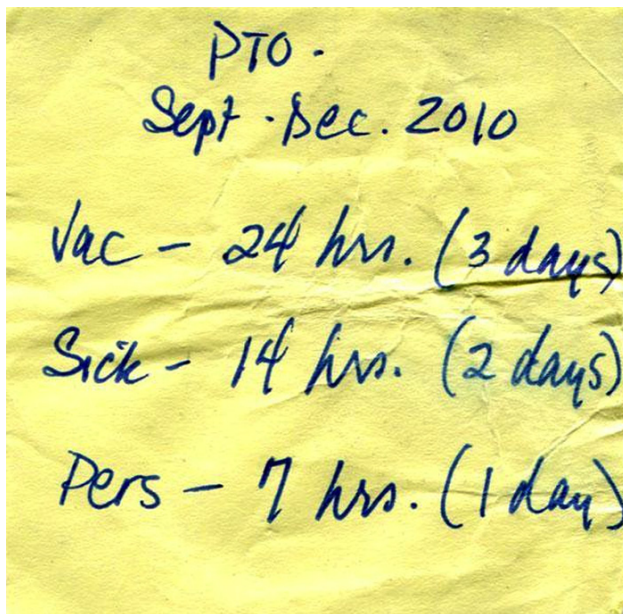 PTO.
Sept. Dec. 2010
Vac - 24 hrs. (3 days)
Sick - 14 hrs. (2 days)
Pers - 7 hrs. (1 day)